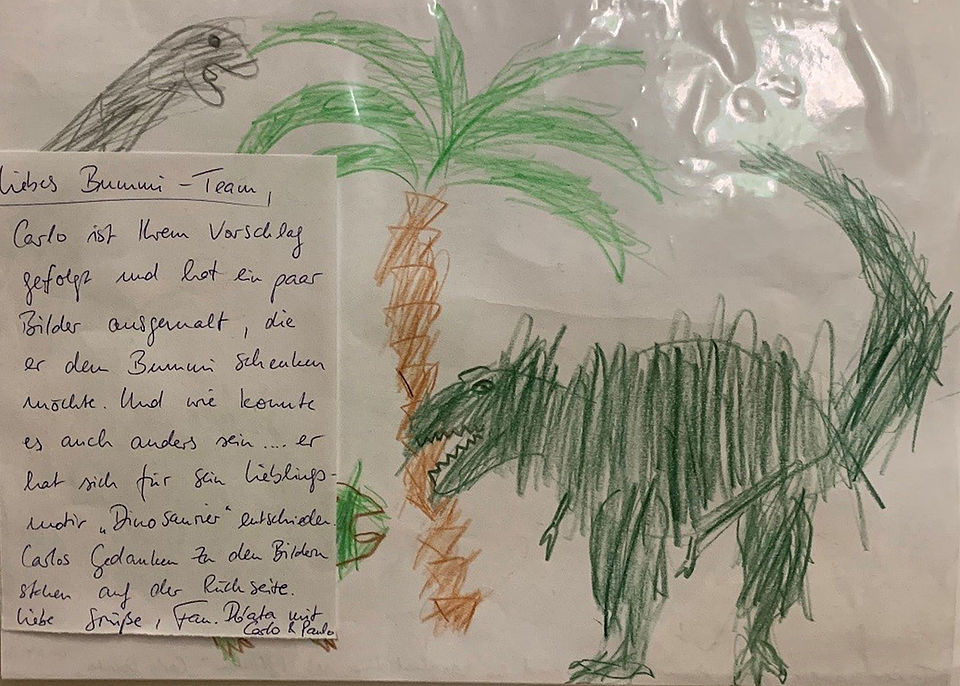 Liebes Bummi-Team,
Carlo ist Ihrem Vorschlag
gefolgt und hat ein paar
Bilder ausgemalt, die
er dem Bummi schenken
möchte. Und wie könnte
es auch anders sein.... er
hat sich für sein Lieblings-
motiv „Dinosaurier" entschieden.
Carlos Gedanken zu den Bildern
stehen auf der Rückseite.
Liebe Grüße, Fam. mit
Carlo & Paulo